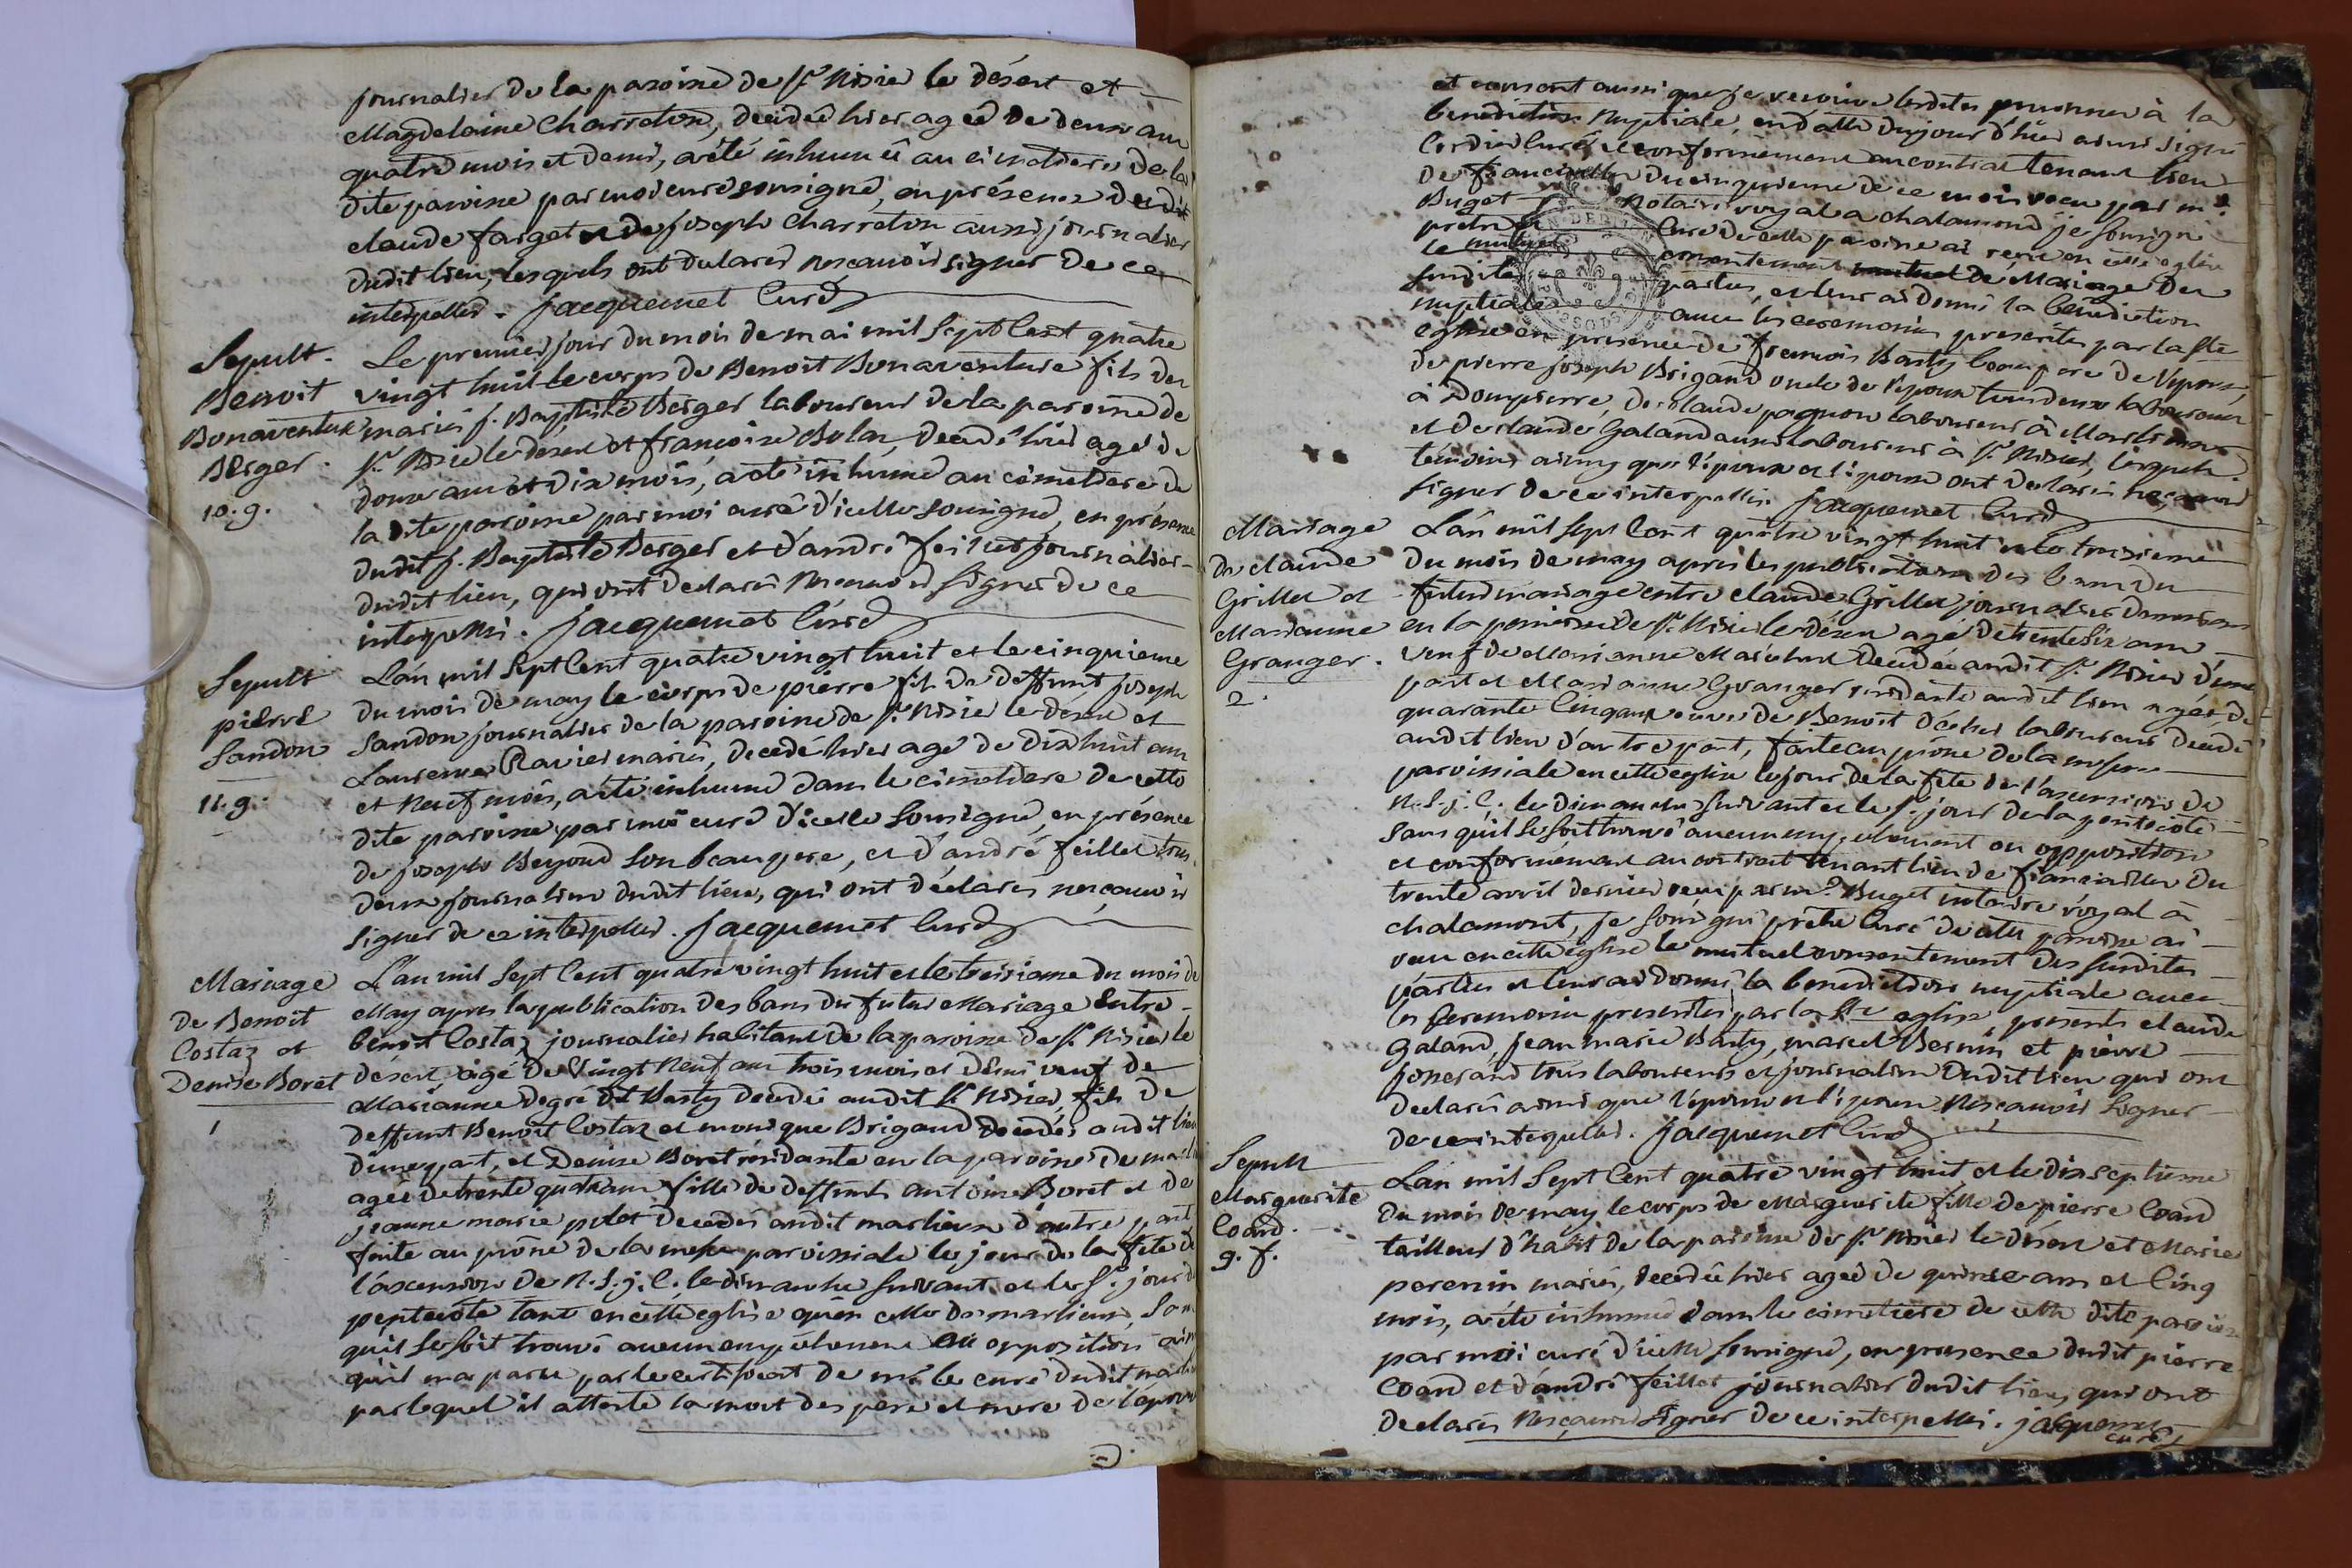 journalier de la paroisse de St Nisier le désert et
Magdelaine Charreton, décédée hier agée de deux ans
quatre mois et demi, a été inhumée au cimetiere de la
dite paroisse par moi curé soussigné, en présence dudit
claude farget et de joseph Charreton aussi journalier
dudit lieu, lesquels ont declarés ne sçavoir signer de ce
interpellés. jacquemet Curé
Sepult.
Benoit
Bonaventure
Berger.
10. g.
Le premier jour du mois de mai mil sept Cent quatre
vingt huit le corps de Benoit Bonaventure fils des
mariés j. Baptiste Berger laboureur de la paroisse de
St Nisier le desert et francoise Bolas, decedé hier agé de
douze ans et dix mois, a été inhumé au cimetiere de
la dite paroisse par moi curé d'icelle soussigné, en présence
dudit j. Baptiste Berger et d'andré feillet journalier
dudit lieu, qui ont declarés ne scavoir signer de ce
interpellés. jacquemet Curé
Sepult
pierre
Sandon
11. g.
L'an mil sept Cent quatre vingt huit et le cinquieme
du mois de may le corps de pierre fils de deffunt joseph
Sandon journalier de la paroisse de St Nisier le desert et
Laurence Ravier mariés, decedé hier agé de dix huit ans
et neuf mois, a été inhumé dans le cimetiere de cette
dite paroisse par moi curé d'icelle soussigné, en présence
de joseph Beyond son beaupere, et d'andré feillet tous
deux journaliers dudit lieu, qui ont déclarés ne sçavoir
signer de ce interpellés. jacquemet Curé
Mariage
De Benoit
Costaz et
Denise Boret
1
L'an mil sept Cent quatre vingt huit et le treisieme du mois de
May apres la publication des bans du futur Mariage Entre
benoit Costaz journalier habitant de la paroisse de St Nisier le
désert agé de vingt neuf ans trois mois et demi veuf de
Marianne degré dit Basty decedée audit St Nisier, fils de
deffunt Benoit Costaz et monique Brigand decedés audit lieu
d'une part, et Denise Boret résidante en la paroisse de marlieu
agée de trente quatre ans fille de deffunts antoine Boret et de
jeanne marie pelet decedés audit marlieux d'autre part
faite au prône de la messe paroissiale le jour de la fete de
l'ascension de N.S.j.C. le dimanche suivant et le St jour de
pentecôte tant en cette eglise qu'en celle de marlieux, sans
qu'il se soit trouvé aucun empêchement ou opposition ainsi
qu'il m'a paru par le certificat de mr. le curé dudit marlieu
par lequel il atteste la mort des pere et mere de l'épouse
et consent aussi que je recoive lesdites personnes à la
benediction Nuptiale, en datte du jour d'hier ainsi signé
Cordier Curé, et conformement au contrat tenant lieu
de fiancailles du cinquieme de ce mois recu par me
Buget Notaire royal a chalamont je soussigné
pretre Curé de cette paroisse ai recu en cette eglise
le mutuel consentement mutuel de Mariage des
susdites parties, et leur ai donné la bénédiction
nuptiale avec les ceremonies prescrites par la Ste
eglise en presence de francois Basty beaupere de l'époux,
de pierre joseph Brigand oncle de l'époux tous deux laboureurs
à Dompierre, de claude pagnon laboureur à Marlieux
et de claude Galand aussi laboureur à St Nisier, lesquels
témoins ainsy que l'époux et l'épouse ont declarés ne scavoir
signer de ce interpellés. jacquemet Curé
Mariage
De claude
Grillet et
Marianne
Granger.
2
L'an mil sept Cent quatre vingt huit et le treisieme
du mois de may après les publications des bans du
futur mariage entre claude Grillet journalier demeurant
en la paroisse de St Nisier le désert agé de trente six ans
veuf de Marianne Maréchal decedée audit St Nisier d'une
part et Marianne Granger residante audit lieu agée de
quarante Cinq ans veuve de Benoit Déchet laboureur decedé
audit lieu d'autre part, faite au prône de la messe
paroissiale en cette eglise le jour de la fete de l'ascension de
N.S.j.C. le dimanche suivant et le St jour de la pentecôte
sans qu'il se soit trouvé aucun empechement ou opposition
et conformément au contrat tenant lieu de fiancailles du
trente avril dernier recu par me Buget notaire royal à
chalamont, je soussigné prêtre Curé de cette paroisse ai
recu en cette eglise le mutuel consentement des susdites
parties et leur ai donné la benediction nuptiale avec
les Ceremonies prescrites par la Ste eglise, presents claude
Galand, jean marie Basty, marcel Bernin et pierre
josserand tous laboureurs et journaliers dudit lieu qui ont
declarés ainsi que l'époux et l'épouse ne scavoir signer
de ce interpellés. jacquemet Curé
Sepult
Marguerite
Coard.
9. f.
L'an mil sept Cent quatre vingt huit et le dix septieme
du mois de may le corps de Marguerite fille de pierre Coard
tailleur d'habit de la paroisse de St Nisier le désert et Marie
perenin mariés, decedée hier agée de quinze ans et Cinq
mois, a été inhumée dans le cimetiere de cette dite paroisse
par moi curé d'icelle soussigné, en presence dudit pierre
Coard et d'andré feillet journalier dudit lieu, qui ont
declarés ne sçavoir signer de ce interpellés. jacquemet
curé